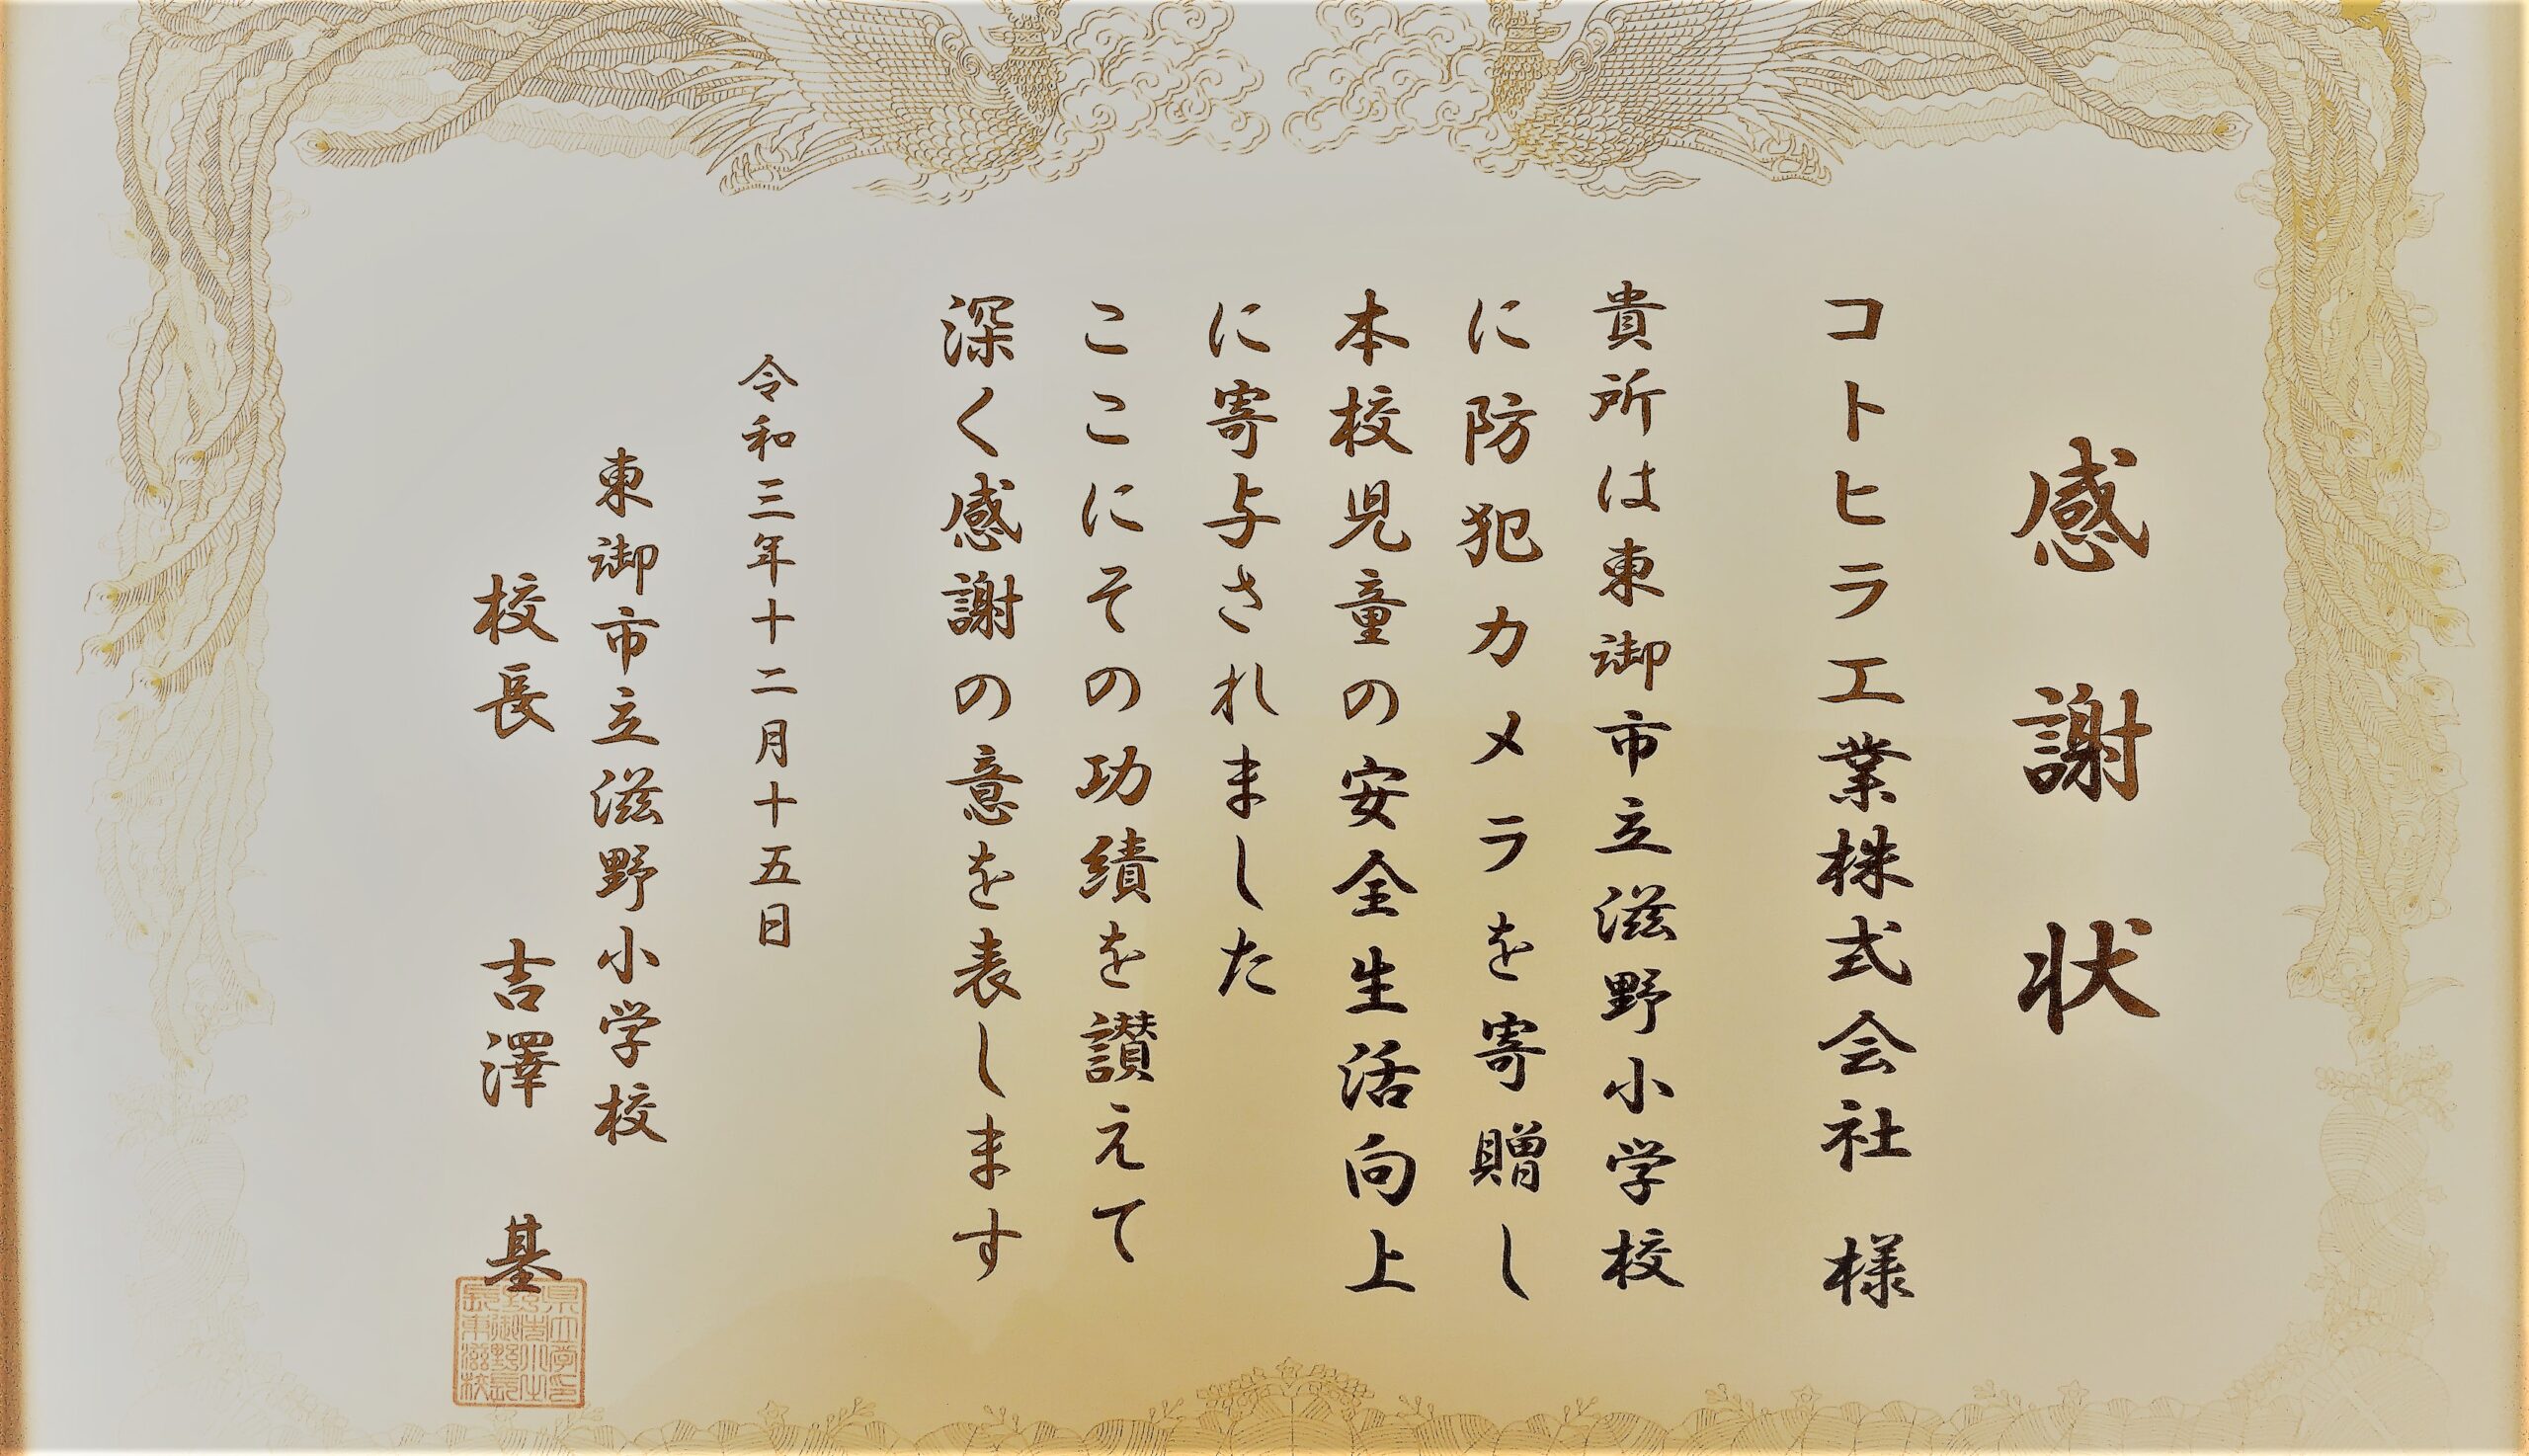 感謝状
コトヒラ工業株式会社 様
貴所は東御市立滋野小学校
に防犯カメラを寄贈し
本校児童の安全生活向上
に寄与されました
ここにその功績を讃えて
深く感謝の意を表します
令和三年十二月十五日
東御市立滋野小学校
校長 吉澤 基